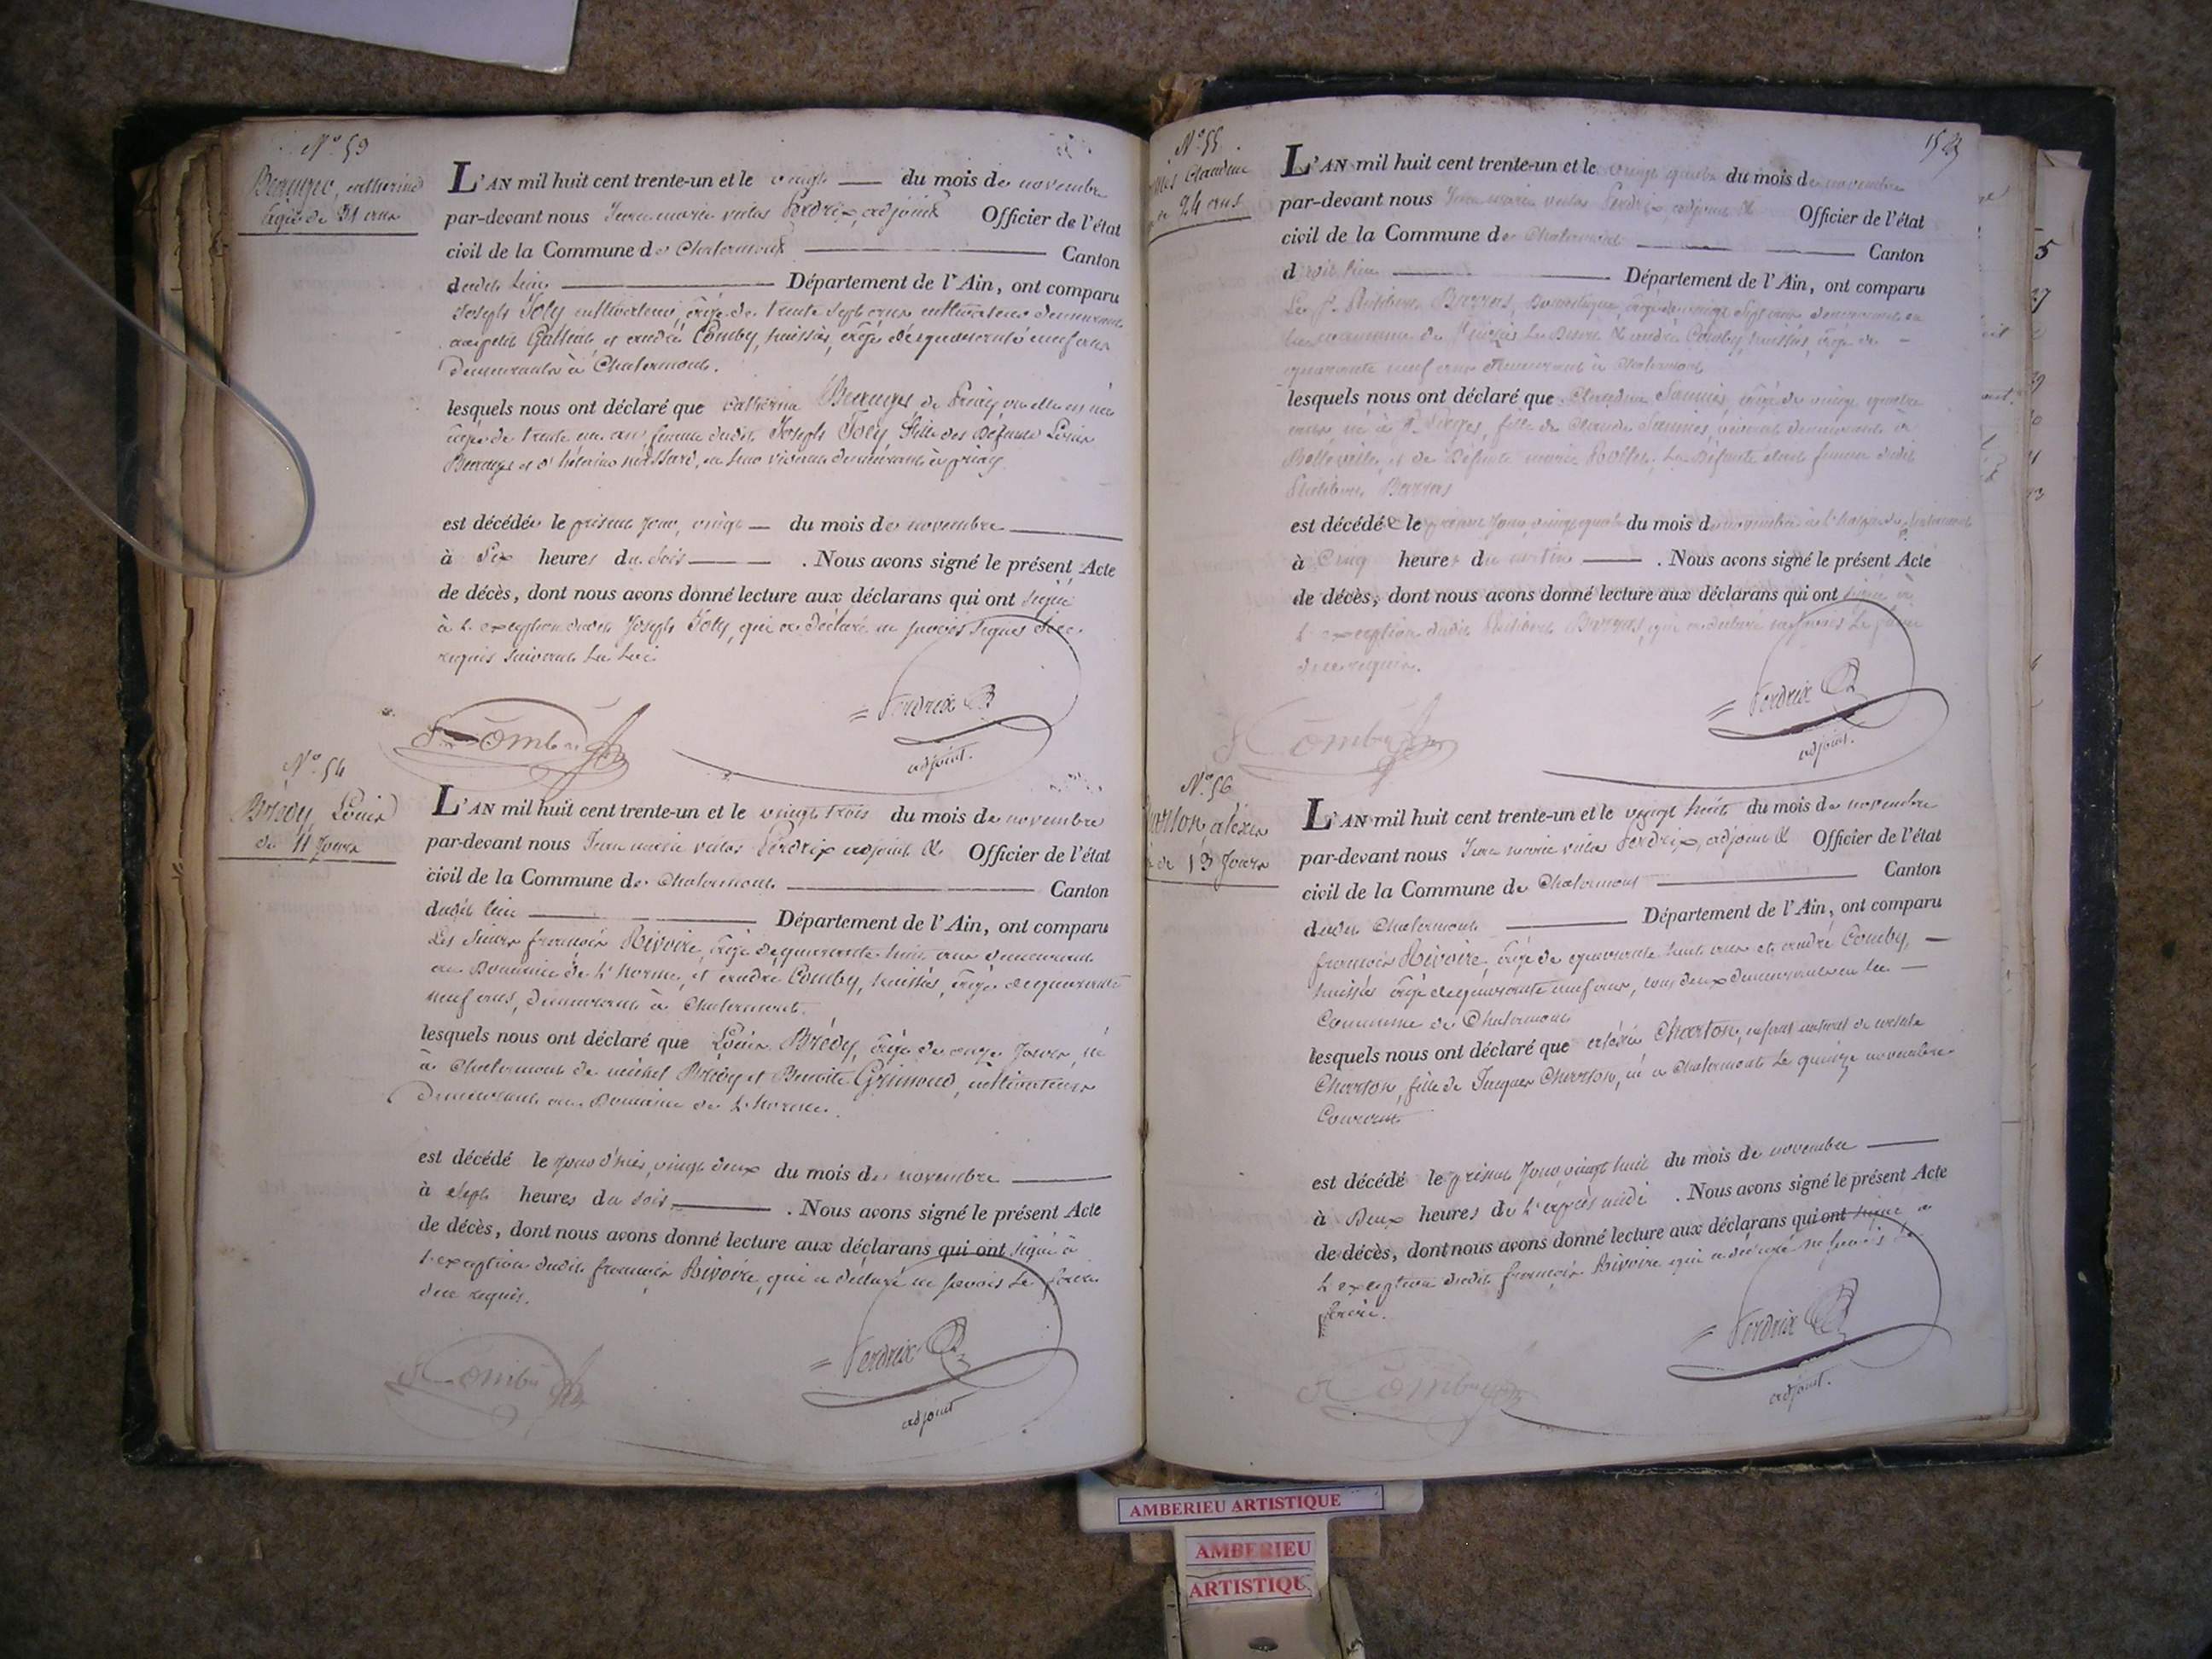 N.° 53
Catherine
âgée de 31 ans
L'AN mil huit cent trente-un et le vingt du mois de novembre
par-devant nous Jean marie Perdrix, adjoint Officier de l'état
civil de la Commune de Chalamont Canton
dudit lieu Département de l'Ain, ont comparu
Joseph Joly cultivateur, âgé de trente sept ans cultivateur demeurant
au petit et andré Comby, huissier, âgé de quarante neuf ans
Demeurants à Chalamont.
lesquels nous ont déclaré que Catherine de Priay, où elle est née
âgée de trente un ans femme dudit Joseph Joly, fille des Défunts Louis
en leur vivant demeurants à priay
est décédée le présent jour, vingt du mois de novembre
à Six heures du soir . Nous avons signé le présent Acte
de décès, dont nous avons donné lecture aux déclarans qui ont signé
à l'exception dudit Joseph Joly, qui a déclaré ne savoir signer de ce
requis suivant la Loi
Perdrix
adjoint.
N.° 54
Brédy, Louis
de 11 Jours
L'AN mil huit cent trente-un et le vingt trois du mois de novembre
par-devant nous Jean marie Perdrix adjoint & Officier de l'état
civil de la Commune de Chalamont Canton
dudit lieu Département de l'Ain, ont comparu
Les Sieurs françois Rivoire, âgé de quarante huit ans demeurant
au Domaine de L'horme, et andré Comby, huissier, âgé de quarante
neuf ans, demeurant à Chalamont.
lesquels nous ont déclaré que Louis Brédy, âgé de onze Jours, né
à Chalamont de michel Brédy et Benoite Grimaud, cultivateurs
Demeurants au Domaine de L'horme.
est décédé le jour d'hier, vingt deux du mois de novembre
à Sept heures du soir . Nous avons signé le présent Acte
de décès, dont nous avons donné lecture aux déclarans qui ont signé à
l'exception dudit françois Rivoire, qui a déclaré ne savoir le faire
de ce requis.
Perdrix
adjoint
152
N.° 55
Claudine
de 24 ans
L'AN mil huit cent trente-un et le vingt quatre du mois de novembre
par-devant nous Jean marie Perdrix, adjoint & Officier de l'état
civil de la Commune de Chalamont Canton
dudit lieu Département de l'Ain, ont comparu
Le S.r Philibert Barras, Domestique, âgé de vingt Sept ans demeurant en
la commune de & andré Comby, huissier, âgé de
quarante neuf ans demeurant à Chalamont
lesquels nous ont déclaré que Claudine Saunier, âgée de vingt quatre
ans, né à fille de Claude Saunier, vivant demeurant à
Belleville, et de Défunte marie La Défunte etant femme dudit
Philibert Barras
est décédée le présent jour, vingt quatre du mois de novembre
à Cinq heures du matin . Nous avons signé le présent Acte
de décès, dont nous avons donné lecture aux déclarans qui ont signé à
l'exception dudit Philibert Barras, qui a déclaré ne savoir le faire
de ce requis.
Perdrix
adjoint.
N.° 56
Charton, alexis
de 13 Jours
L'AN mil huit cent trente-un et le vingt huit du mois de novembre
par-devant nous Jean marie Perdrix, adjoint & Officier de l'état
civil de la Commune de Chalamont Canton
dudit Chalamont Département de l'Ain, ont comparu
françois Rivoire, âgé de quarante huit ans et andré Comby,
huissier âgé de quarante neuf ans, tous deux demeurants en la
Commune de Chalamont
lesquels nous ont déclaré que alexis Charton, enfant naturel de
Charton, fille de Jacques Charton, né à Chalamont le quinze novembre
Courant
est décédé le présent Jour, vingt huit du mois de novembre
à Deux heures de l'après midi . Nous avons signé le présent Acte
de décès, dont nous avons donné lecture aux déclarans qui ont signé à
l'exception dudit françois Rivoire qui a déclaré ne savoir le
faire.
Perdrix
adjoint.
AMBERIEU ARTISTIQUE
AMBERIEU
ARTISTIQU